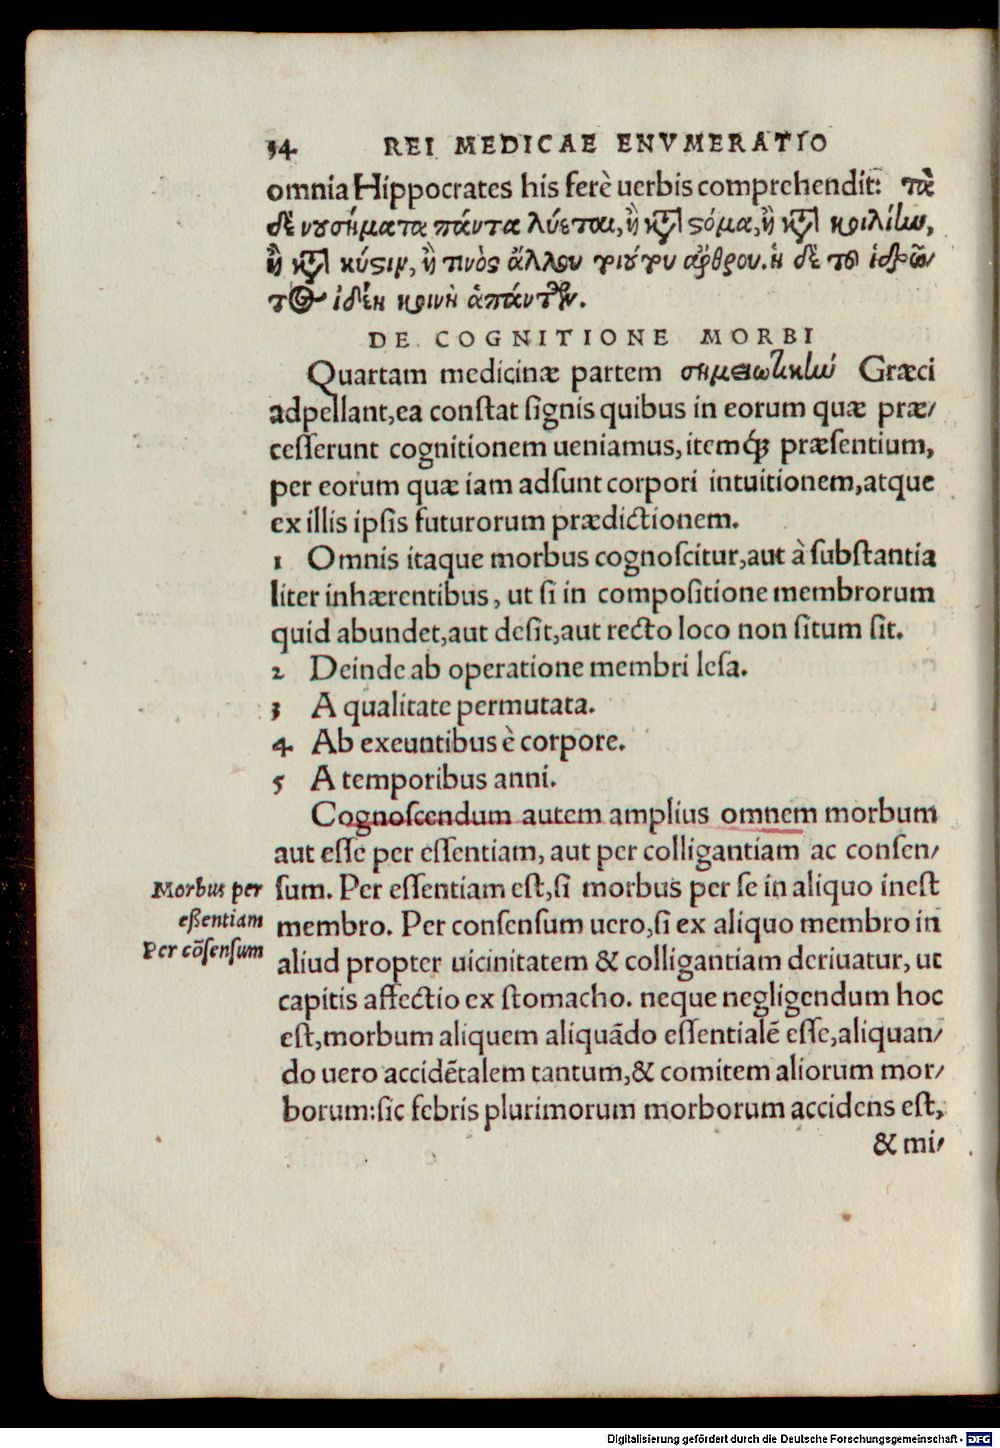 34 REI MEDICAE ENVMERATIO
omnia Hippocrates his ferè uerbis comprehendit: τὰ
δὲ νουσήματα πάντα λύεται, ἢ κατὰ ϛόμα, ἢ κατὰ κοιλίην,
ἢ κατὰ κύϛιν, ἢ τινὸς ἄλλου τοιούτου ἄρθρου. ἡ δὲ τοῦ ἱδρῶ⸗
τος ἰδέη κοινὴ ἁπάντων.
DE COGNITIONE MORBI
Quartam medicinæ partem σημειωτικὴν Græci
adpellant, ea conſtat ſignis quibus in eorum quæ præ⸗
ceſſerunt cognitionem ueniamus, itemq́ꝫ præſentium,
per eorum quæ iam adſunt corpori intuitionem, atque
ex illis ipſis futurorum prædictionem.
1 Omnis itaque morbus cognoſcitur, aut à ſubſtantia
liter inhærentibus, ut ſi in compoſitione membrorum
quid abundet, aut deſit, aut recto loco non ſitum ſit.
2 Deinde ab operatione membri leſa.
3 A qualitate permutata.
4 Ab exeuntibus è corpore.
5 A temporibus anni.
Cognoſcendum autem amplius omnem morbum
aut eſſe per eſſentiam, aut per colligantiam ac conſen⸗
Morbus per
eßentiam
Per cõſenſum
ſum. Per eſſentiam eſt, ſi morbus per ſe in aliquo ineſt
membro. Per conſenſum uero, ſi ex aliquo membro in
aliud propter uicinitatem & colligantiam deriuatur, ut
capitis affectio ex ſtomacho. neque negligendum hoc
eſt, morbum aliquem aliquãdo eſſentialẽ eſſe, aliquan⸗
do uero accidẽtalem tantum, & comitem aliorum mor⸗
borum: ſic febris plurimorum morborum accidens eſt,
& mi⸗
Digitalisierung gefördert durch die Deutsche Forschungsgemeinschaft - DFG